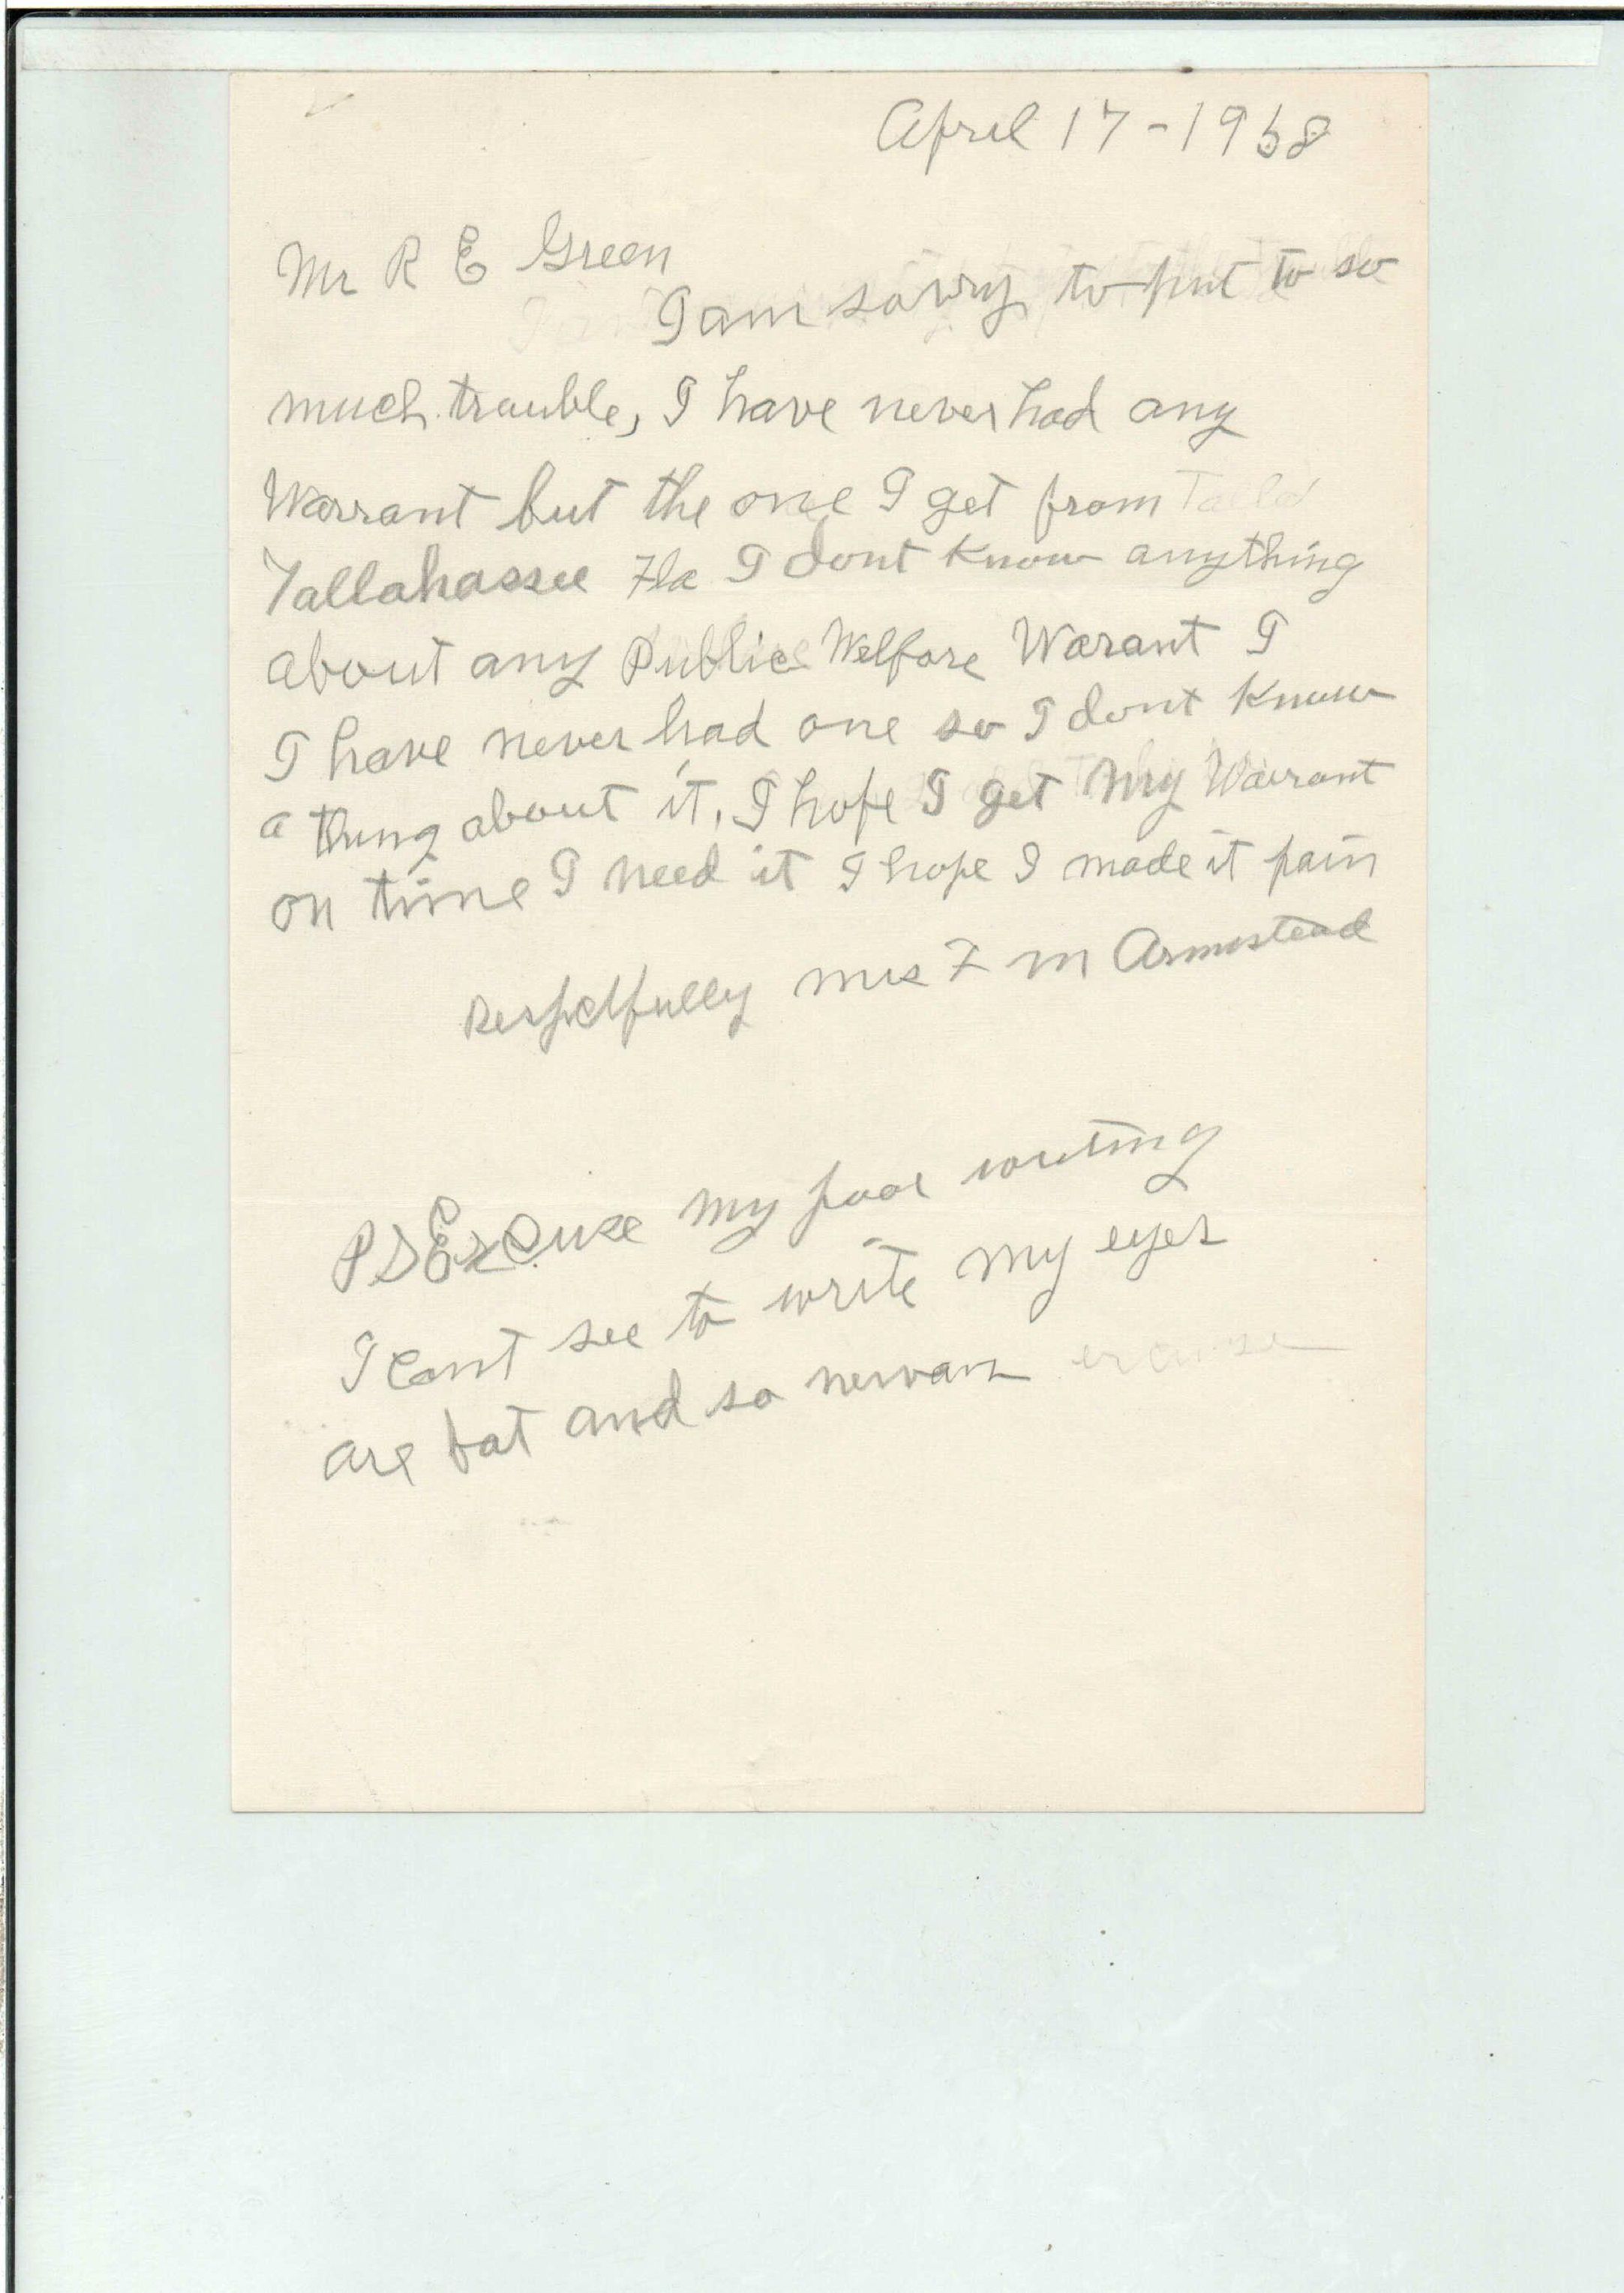 April 17-1958
Mr R E Green
I am sorry to put to so
much trouble, I have never had any
Warrant but the one I get from
Tallahassee Fla I dont know anything
about any Public Welfare Warant I
I have never had one so I dont know
a thing about it. I hope I get my Warrant
on time I need it I hope I made it pain
Respectfully mrs F M Armistead
PS Excuse my poor writing
I cant see to write my eyes
are bat and so nervous